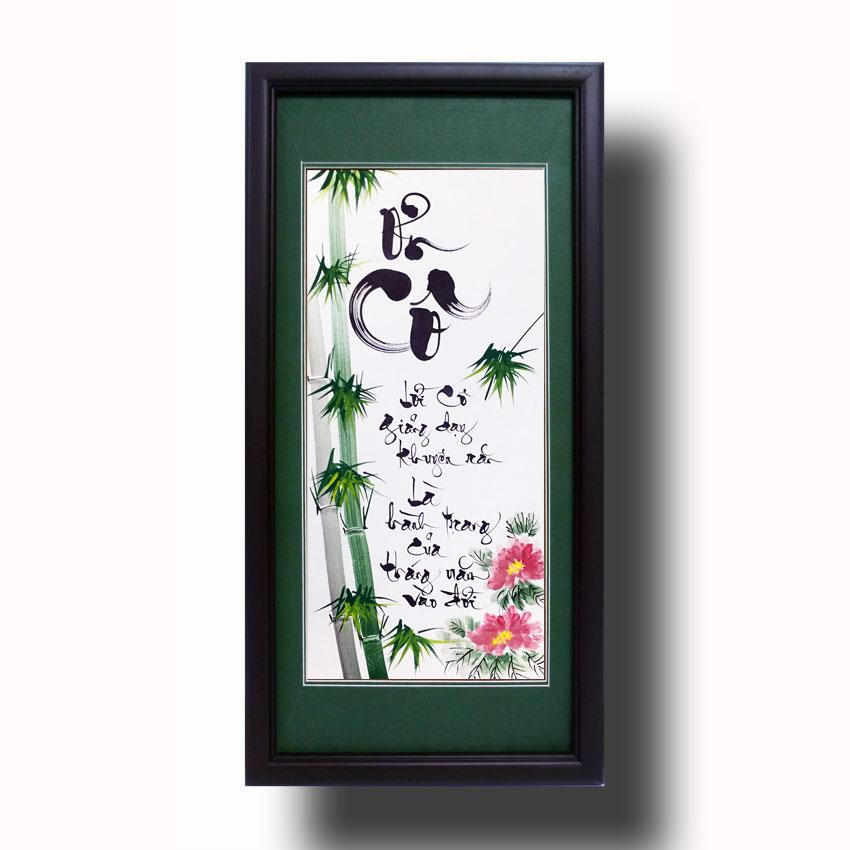 Ơn
Cô
Lời Cô
giảng dạy
khuyên răn
Là
hành trang
của
tháng năm
vào đời